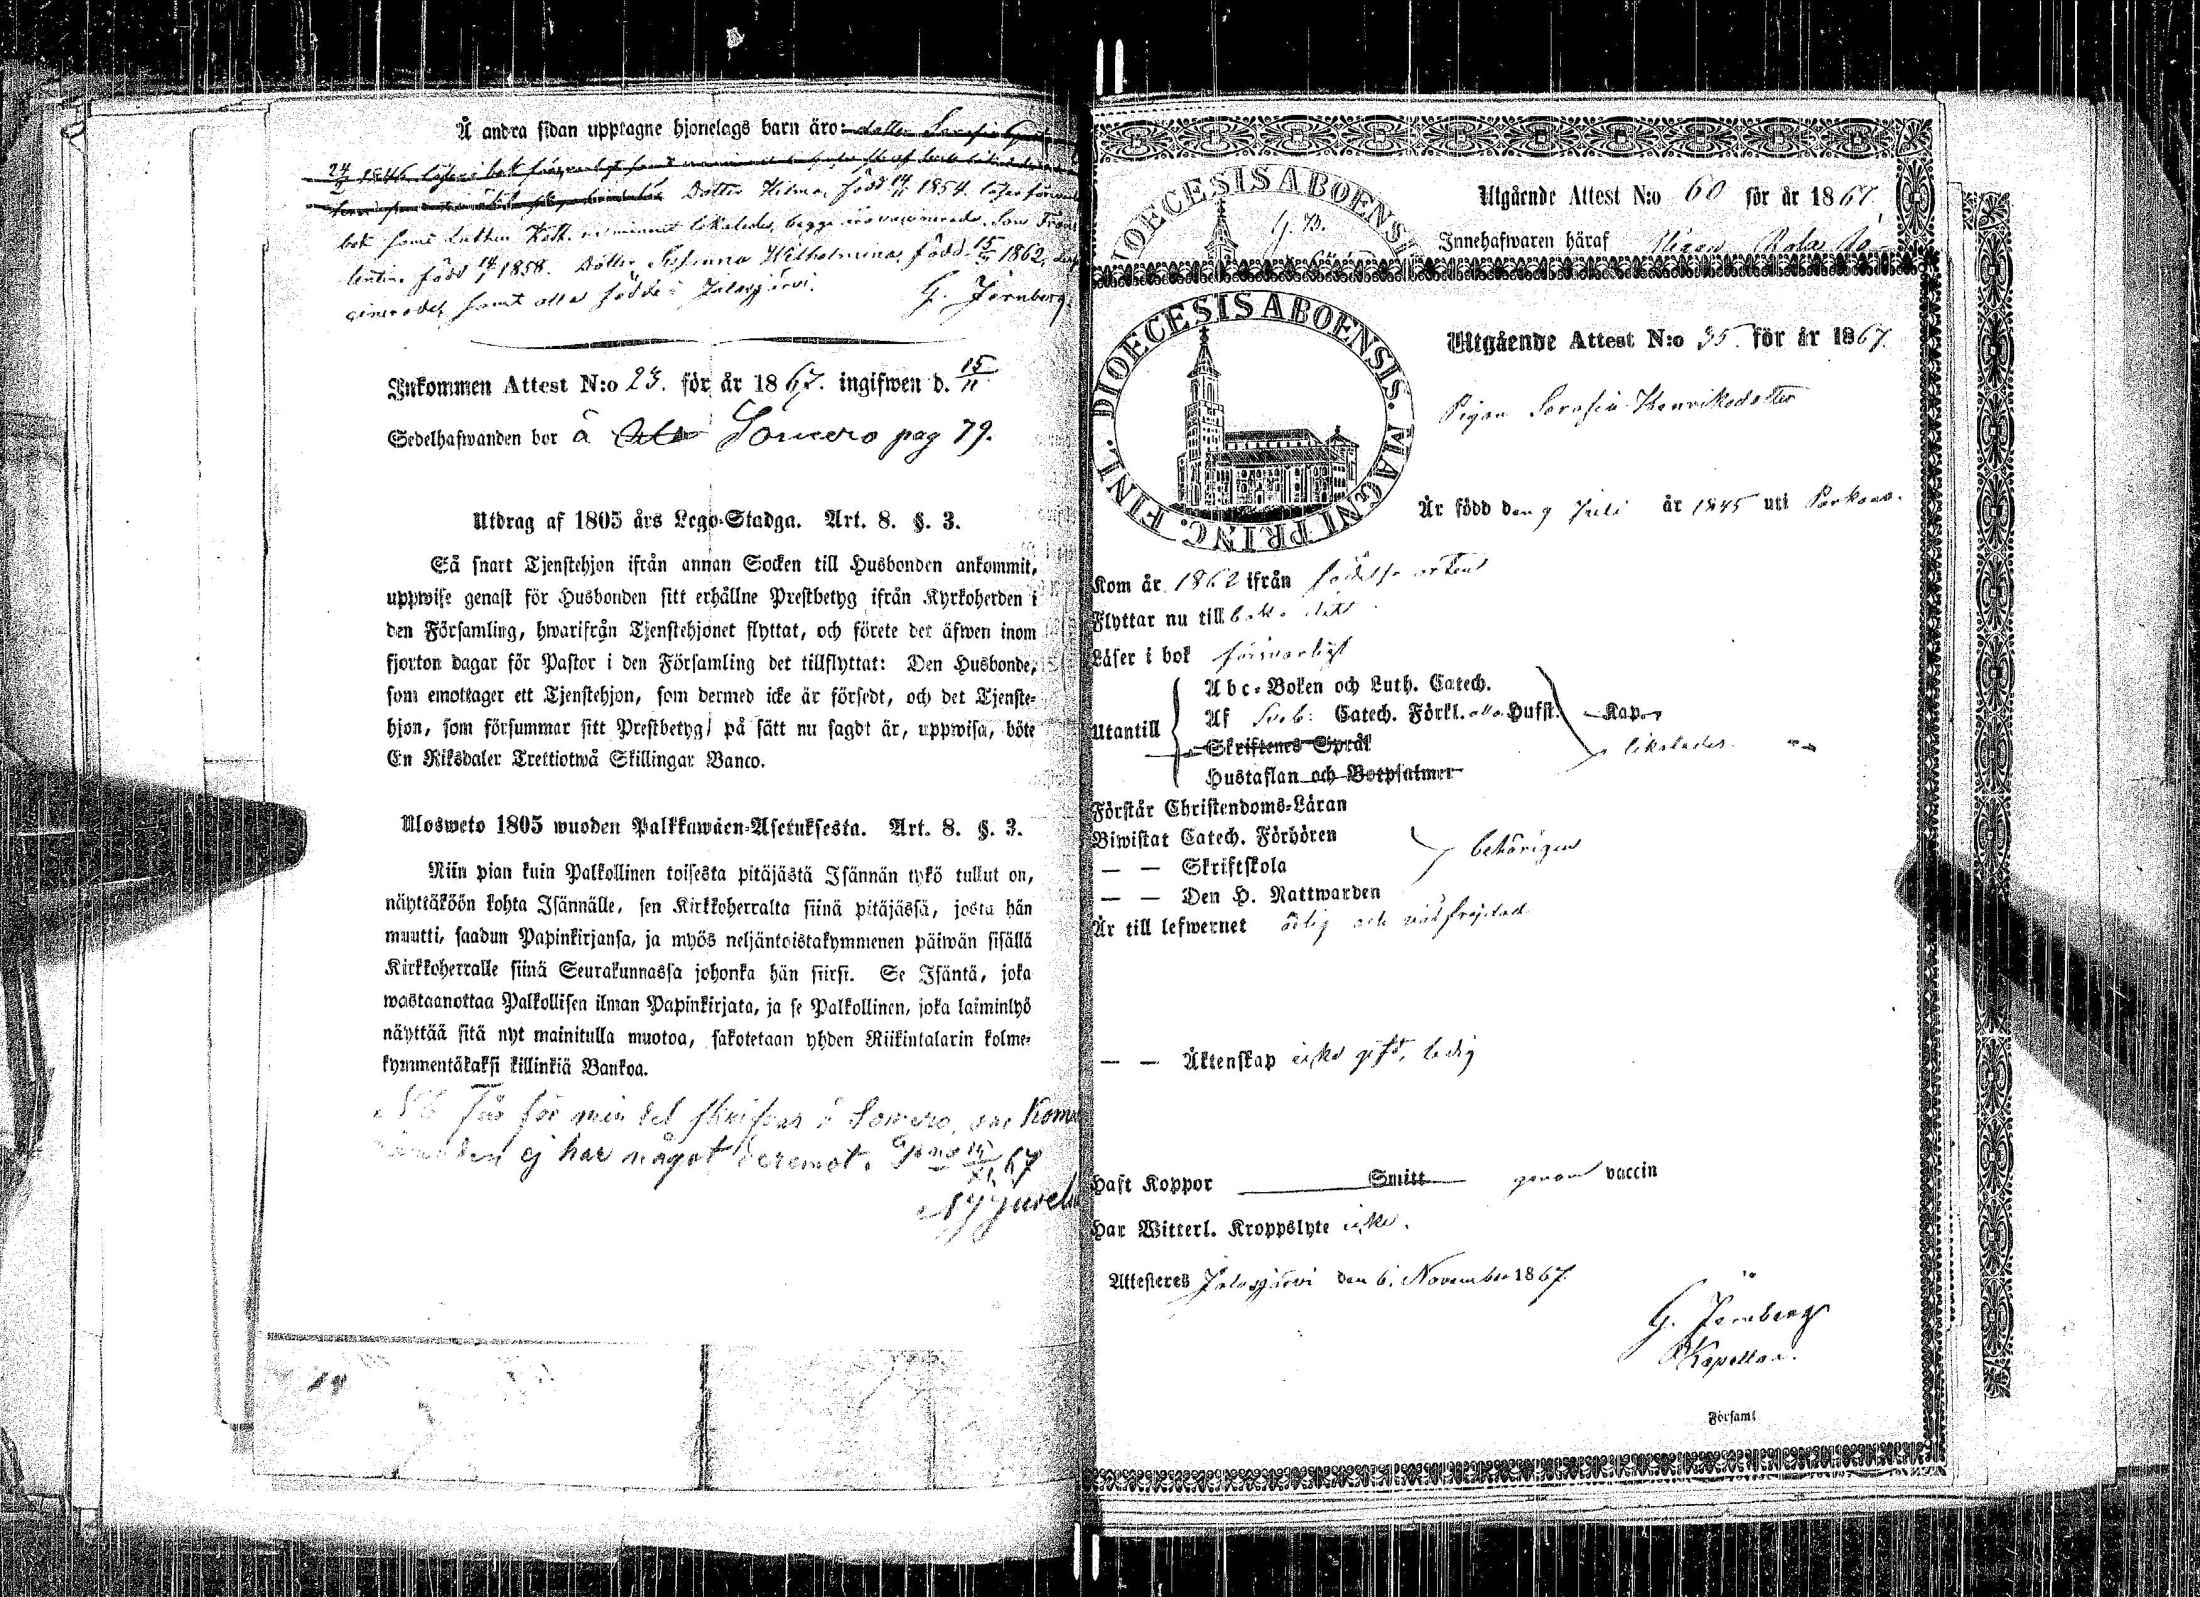 Å andra sidan upptagne hjonelags barn äro: dotter Serafia
24 1846 läser i bok försvarligt samt
Dotter Hilma, född 14 1854. läser försvar
bok samt Luthers Kat. ur minnet likaledes, begge äro vaccinerade. Son Frans
lentin född 14 1858. Dotter Josefina Wilhelmina, född 15 1862,
cinerades samt alla födde i Jalasjärvi.
G. Jernberg.
Inkommen Attest N:o 23. för år 1867. ingifwen d. 15/11
Sedelhafwanden bor å Somero pag 79.
Utdrag af 1805 års Lego-Stadga. Art. 8. §. 3.
Så snart Tjenstehjon ifrån annan Socken till Husbonden ankommit,
uppwise genast för Husbonden sitt erhållne Prestbetyg ifrån Kyrkoherden i
den Församling, hwarifrån Tjenstehjonet flyttat, och förete det äfwen inom
fjorton dagar för Pastor i den Församling det tillflyttat: Den Husbonde,
som emottager ett Tjenstehjon, som dermed icke är försedt, och det Tjenste-
hjon, som försummar sitt Prestbetyg, på sätt nu sagdt är, uppwisa, böte
En Riksdaler Trettiotwå Skillingar Banco.
Ulosweto 1805 wuoden Palkkawäen-Asetuksesta. Art. 8. §. 3.
Niin pian kuin Palkollinen toisesta pitäjästä Isännän tykö tullut on,
näyttäköön kohta Isännälle, sen Kirkkoherralta siinä pitäjässä, josta hän
muutti, saadun Papinkirjansa, ja myös neljäntoistakymmenen päiwän sisällä
Kirkkoherralle siinä Seurakunnassa johonka hän siirsi. Se Isäntä, joka
wastaanottaa Palkollisen ilman Papinkirjata, ja se Palkollinen, joka laiminlyö
näyttää sitä nyt mainitulla muotoa, sakotetaan yhden Riikintalarin kolme-
kymmentäkaksi killinkiä Bankoa.
NB Får för min del skrifvas i Somero, om Kom
ej har något deremot. 67
DIOECESIS ABOENSIS
G. B.
Utgående Attest N:o 60 för år 1867
Innehafwaren häraf
DIOECESIS ABOENSIS. MAGNI PRINC. FINL.
Utgående Attest N:o 35. för år 1867.
Pigan Serafia Henriksdotter
Är född den 9 Juli år 1845 uti Parkano.
Kom år 1862 ifrån födelse orten
Flyttar nu till
Läser i bok försvarligt
Utantill
Abc-Boken och Luth. Catech.
Af Sveb: Catech. Förkl. Husst. Kap.
Skriftenes Språk
likaledes.
Hustaflan och Botpsalmer
Förstår Christendoms-Läran
Biwistat Catech. Förhören
— — Skriftskola
behörigen
— — Den H. Nattwarden
Är till lefwernet ärlig och välfrejdad
— — Äktenskap icke gift, ledig
Haft Koppor Smitt genom vaccin
Har Witterl. Kroppslyte icke.
Attesteras Jalasjärvi den 6. November 1867.
G. Jernberg
Kapellan.
Församl